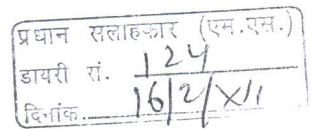 प्रधान सलाहकार (एम.एस.)
डायरी सं. 124
दिनांक. 16/2/